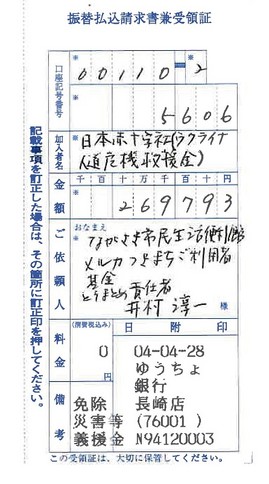 振替払込請求書兼受領証
口座記号番号
00110-2
5606
加入者名
日本赤十字社(ウクライナ
人道危機救援金)
金額
千 百 十 万 千 百 十 円
269793
ご依頼人
おなまえ
ながさき市民生活便利館
メルカつきまちご利用者
基金
とりまとめ責任者
井村淳一
様
料金
(消費税込み)
0 円
日附印
04-04-28
ゆうちょ
銀行
長崎店
(76001 )
N94120003
備考
免除
災害等
義援金
記載事項を訂正した場合は、その箇所に訂正印を押してください。
この受領証は、大切に保管してください。